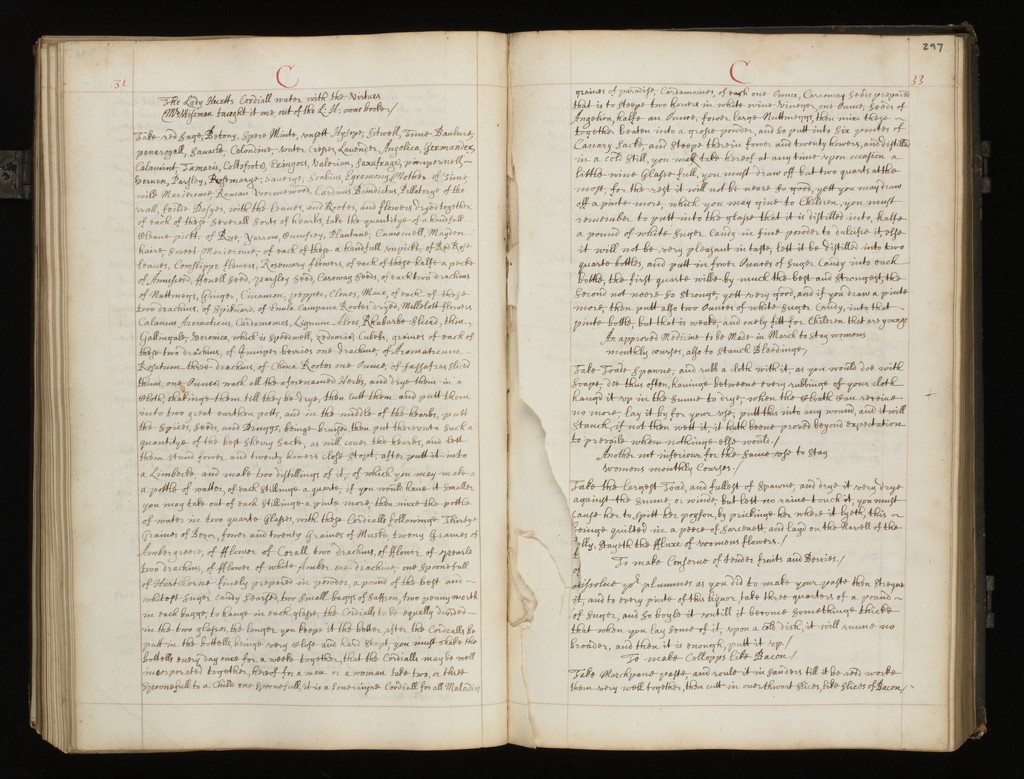 31
C
The Lady Huetts Cordiall water with the Virtues
Mrs Wiseman taught it me, out of the L: H: owne booke:/
Take red Sage, Betony, Spere Minte, unsett Hysope, Setwell, Time, Baulme,
penaroyall, Sauarie, Celondine, water Creses, Lauender, Angelica, Germander,
Calamint, Tameris, Coltsfoote, Auens, Valerian, Saxafrage, pimpernell,
Veruen, Parsley, Rosemary, Sauery, Scabius, Egremony, Mother of Time,
wild Marierome, Roman Wormewood, Carduus Benedictus, Pellatory of the
wall, feilde Dasyes, with the leaues, and Rootes, and flowers dryed together,
of each of these seuerall sorts of hearbs, take the quantitye of a handfull
Cleane pickt, of Rue, Yarrow, Cumfrey, Plantane, Camomell, Mayden
haire, Sweet Marierome, of each of these a handfull unpickt, of Red Rose
leaues, Cowslippe flowers, Rosemary flowers, of each of these halfe a pecke
of Anniseed, ffenell seed, parsley seed, Caroway Seeds, of each two drachms
of Nuttmegs, Ginger, Cinamon, pepper, Cloues, Mace, of each of these
two drachms, of Spiknard, of Enula Campana Rootes dryed, Mellolott flowers
Calamus Aromaticus, Cardamomes, Lignum Aloes, Rhubarbe sliced, thin,
Gallingale, Veronica, which is speedwell, zedoaria, Cubebs, graines of each of
these two drachms, of Juniper berries one drachme, of Aromaticum
Rosatum three drachms, of China Rootes one Ounce, of sassafras sliced
thinn, one Ounce, wash all the aforenamed Herbs, and drye them in a
Cloth, shakinge them till they be drye, then cutt them and putt them
into two great earthen potts, and in the middle of the hearbs, putt
the Spices, Seeds, and Druggs, beinge bruised, then put thereunto such a
quantitye of the best Sherry Sacke, as will couer the hearbs, and lett
them stand fower and twenty howers close stopt, after putt it into
a Limbecke and make two distillings of it, of which you may make
a pottle of watter, of each stillinge a quarte, if you would haue it smaller
you may take out of each stillinge a pinte more, then mixe the pottle
of water in two quarte Glasses, with these Cordialls followinge Thirtye
Graines of Bezor, fower and twenty Graines of Muske, twenty Graines of
Ambergreece, of fflower of Corall two drachms, of fflower of pearle
two drachms, of fflower of white Amber one drachme, one spoonefull
of Hartshorne finely prepared in powder, a pound of the best and
whitest Suger Candy Searsed, two small baggs of Saffron, two penny worth
in each bagge, to hange in each glasse, the Cordialls to be equally diuided
in the two glasses, the longer you keepe it the better, after the Cordialls be
putt in the bottells, beinge very close and hard stopt, you must shake the
bottells euery day once for a weeke together, that the Cordialls may be well
incorporated together, heerof for a man or a woman take two, or three
Spoonefull to a Child one spoonefull, it is a Soueraigne Cordiall for all Maladies
297
C
33
graines of paradise, Cardamomes, of each one Ounce, Carroway Seeds prepared
that is to steepe two howers in white wine Vineger, one Ounce, Seeds of
Angelica, halfe an Ounce, fower large Nuttmeggs, then mixe these
together beaten into a grosse powder, and so putt into six pintes of
Canary Sacke, and steepe therin fower and twenty howers, and distill it
in a Cold Still, you may take hereof at any time upon occasion a
little wine Glasse full, you must draw off but two quarts at the
most, for the rest it will not be neere so good, yett you may draw
off a pinte more, which you may giue to Children, you must
remember to putt into the glasse that it is distilled into, halfe
a pound of white Suger Candy in fine powder to dulcifie it, else
it will not be very pleasant in taste, lett it be distilled into two
quarte bottles, and putt in fower Ounces of Suger Candy into each
bottle, the first quarte wilbe by much the best and strongest, the
Second not neere so stronge, yett very good, and if you draw a pinte
more, then putt also two Ounces of white Suger Candy, into that
pinte bottle, but that is weake, and onely fitt for Children that are younge
An approved Medicine to be Made in March to stay womens
monthly courses, also to Stanch Bleedinge,
Take Toade Spawne, and rubb a cloth with it, as you would doe with
Soape, doe this often, hauinge betweene euery rubbinge of your cloth
hangd it up in the Sunne to drye, when the Cloath can receiue
no more, lay it by for your use, putt this into any wound, and it will
stanch, if not then wett it, it hath beene proued beyond expectation
to preuaile when nothinge else would./
Another not inferiour for the same use to stay
womens monthly Courses:/
Take the largest Toad, and fullest of Spawne, and drye it very drye
against the Sunne, or winde, but lett no raine touch it, you must
cause her to spitt her poyson, by prickinge her where it lyeth, this
beinge quilted in a peece of Sarcenett, and layd on the Nauell of the
belly, stayeth the ffluxe of womens flowers./
To make Conserue of tender fruits and Berries./
dissolue yor plummes as you did to make your paste then streyne
it, and to euery pinte of this liquor, take three quarters of a pound
of Suger, and so boyle it untill it become somethinge thicke
that when you lay some of it, upon a Cold dish, it will runne no
broader, and then it is enough, putt it up./
To make Collopps like Bacon/
Take Marchpane paste, and roule it in Sanders till it be red, worke
them very well together, then cutt in ouerthwart slices, like slices of Bacon/